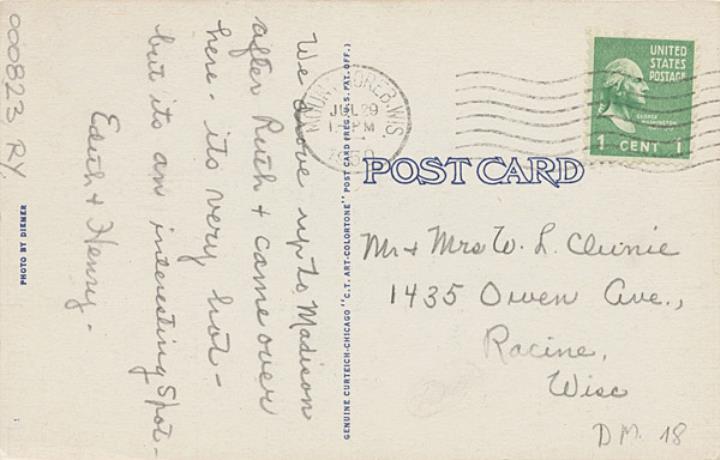 We drove up to Madison
after Ruth + came over
here. its very hot -
but its an interesting spot -
Edith + Henry.
000823 RY
PHOTO BY DIENER
GENUINE CURTEICH-CHICAGO "C.T. ART-COLORTONE" POST CARD (REG. U.S. PAT. OFF.)
MOUNT HOREB, WIS.
JUL 29
PM
1950
UNITED
STATES
POSTAGE
GEORGE
WASHINGTON
1 CENT 1
POST CARD
Mr + Mrs W. L. Clunie
1435 Owen Ave.,
Racine,
Wisc
D.M. 18